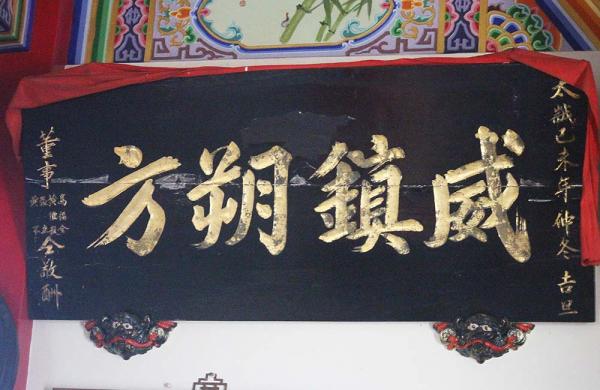 太歲己未年仲冬吉旦
威鎮朔方
董事
仝敬酬